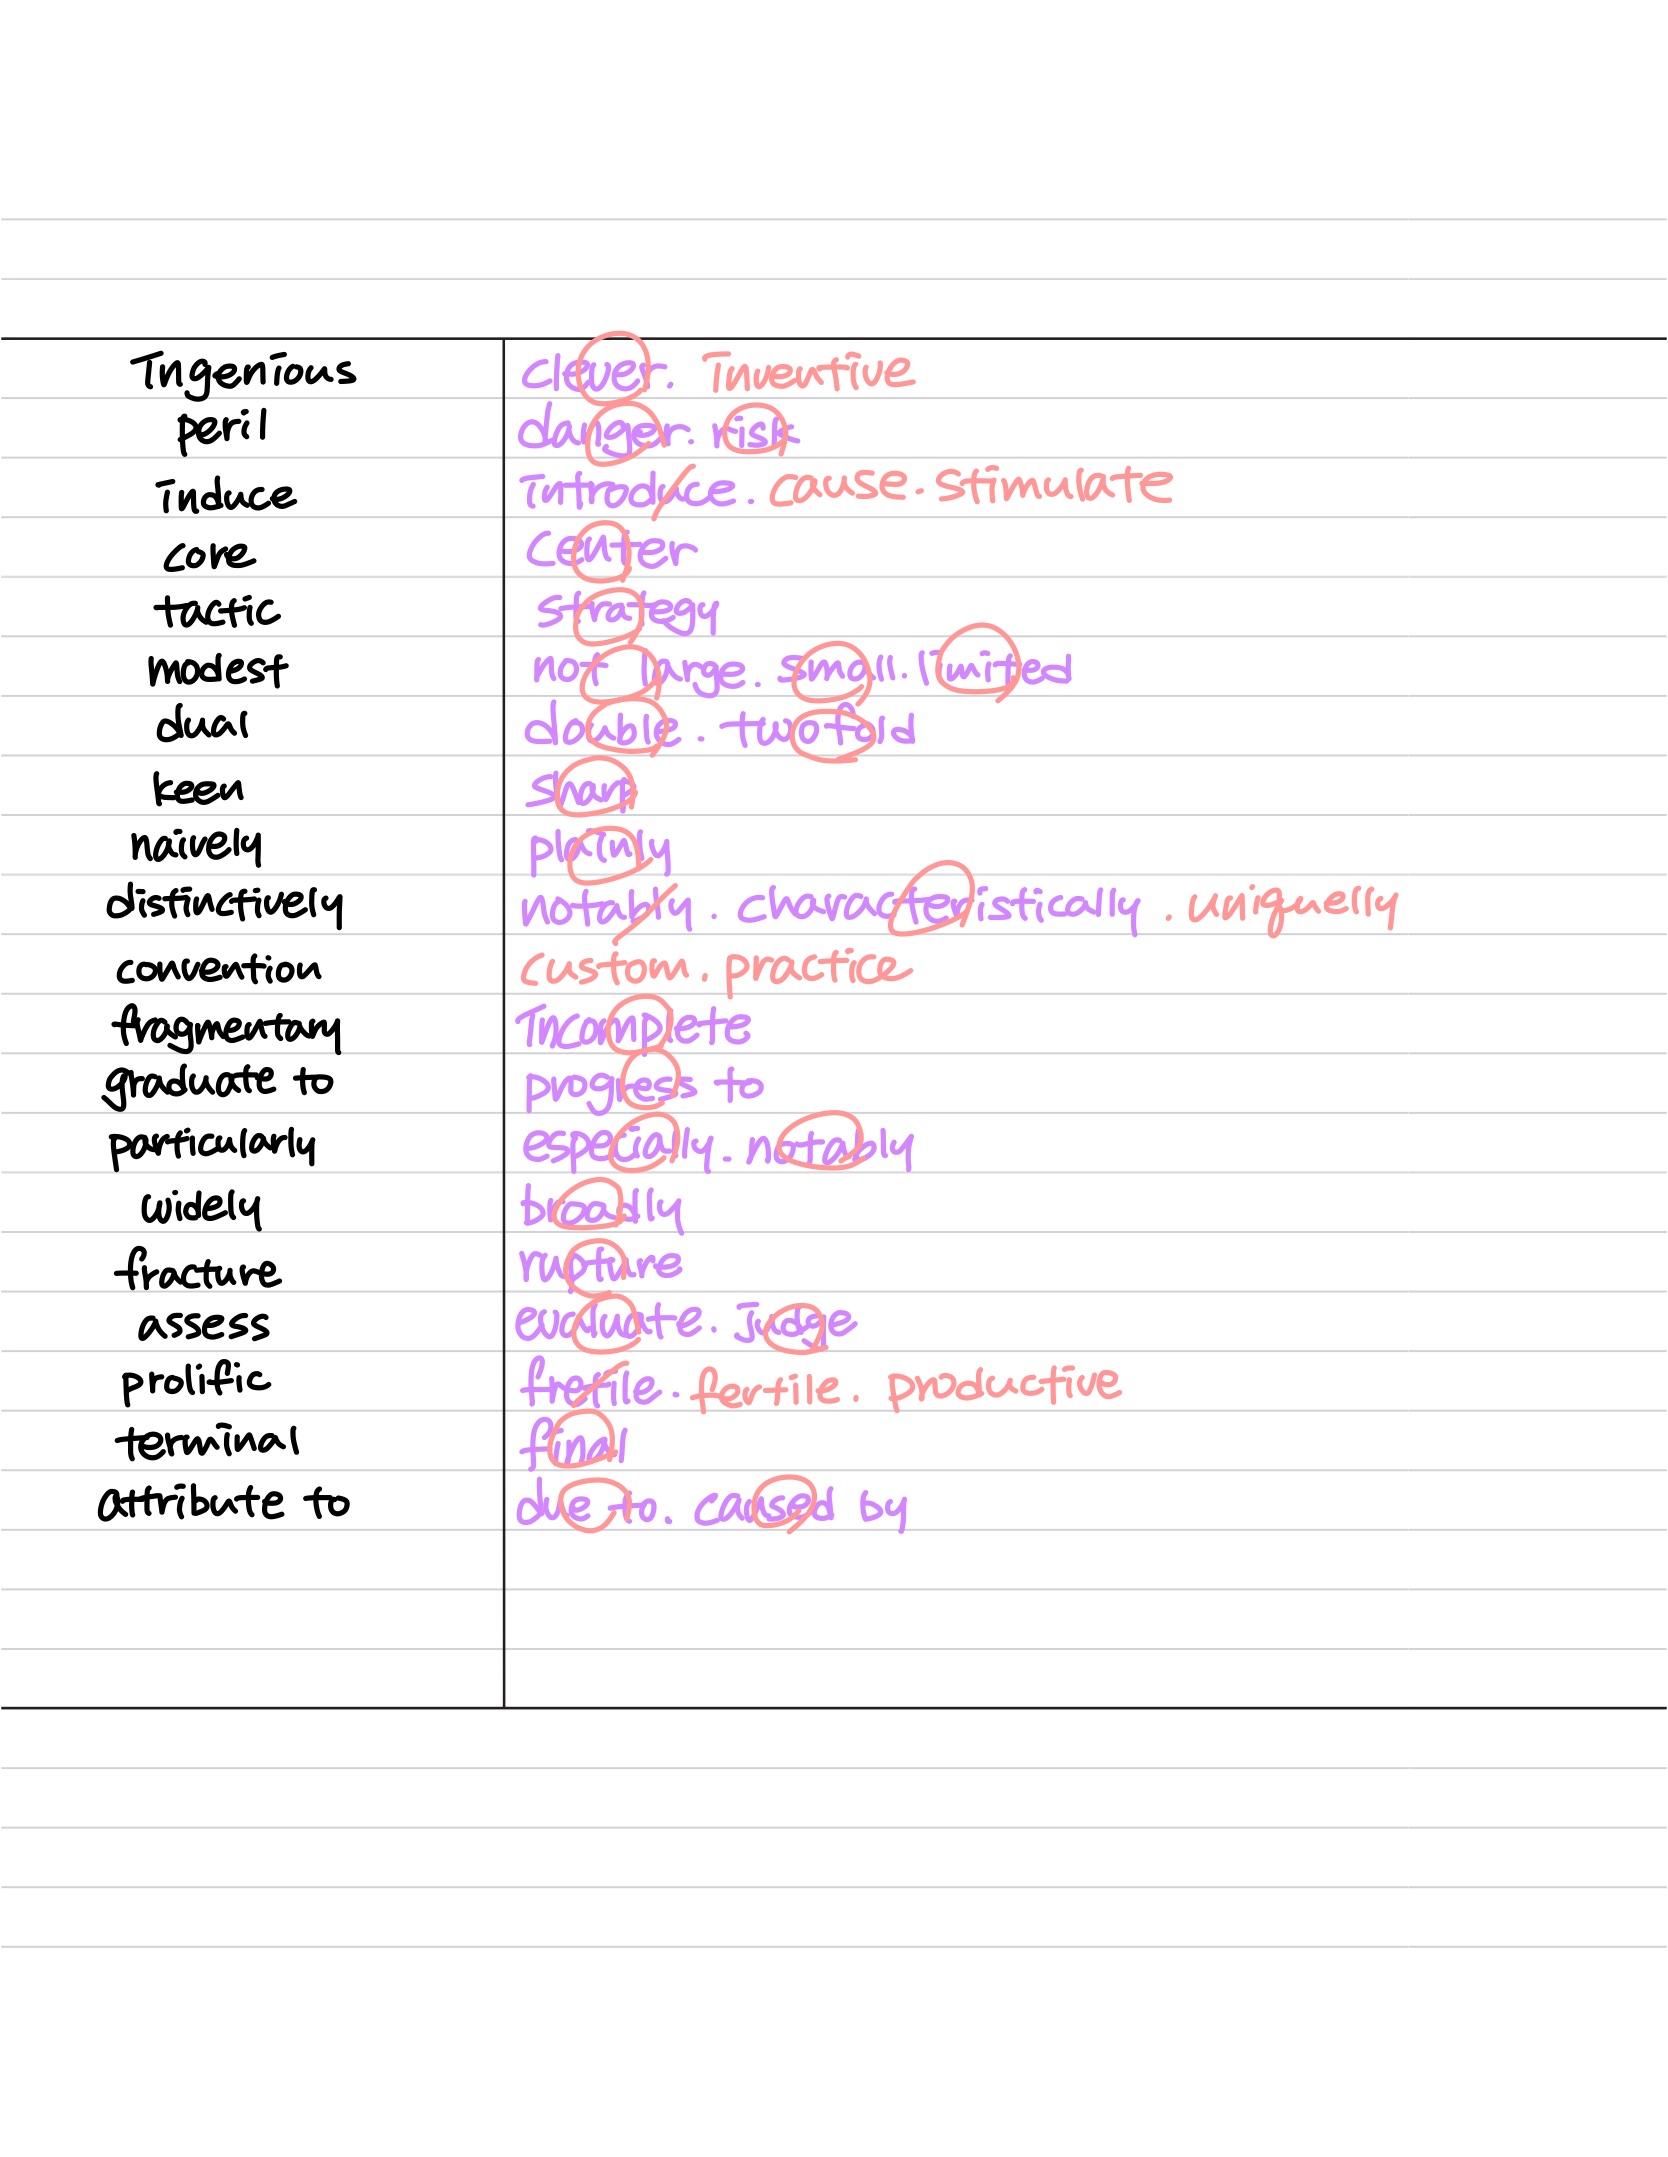 Ingenious clever. Inventive
peril danger. risk
induce introduce. cause. stimulate
core center
tactic strategy
modest not large. small. limited
dual double. twofold
keen sharp
naively plainly
distinctively notably. characteristically. uniquelly
convention custom. practice
fragmentary Incomplete
graduate to progress to
particularly especially. notably
widely broadly
fracture rupture
assess evaluate. Judge
prolific fretile. fertile. productive
terminal final
attribute to due to. caused by